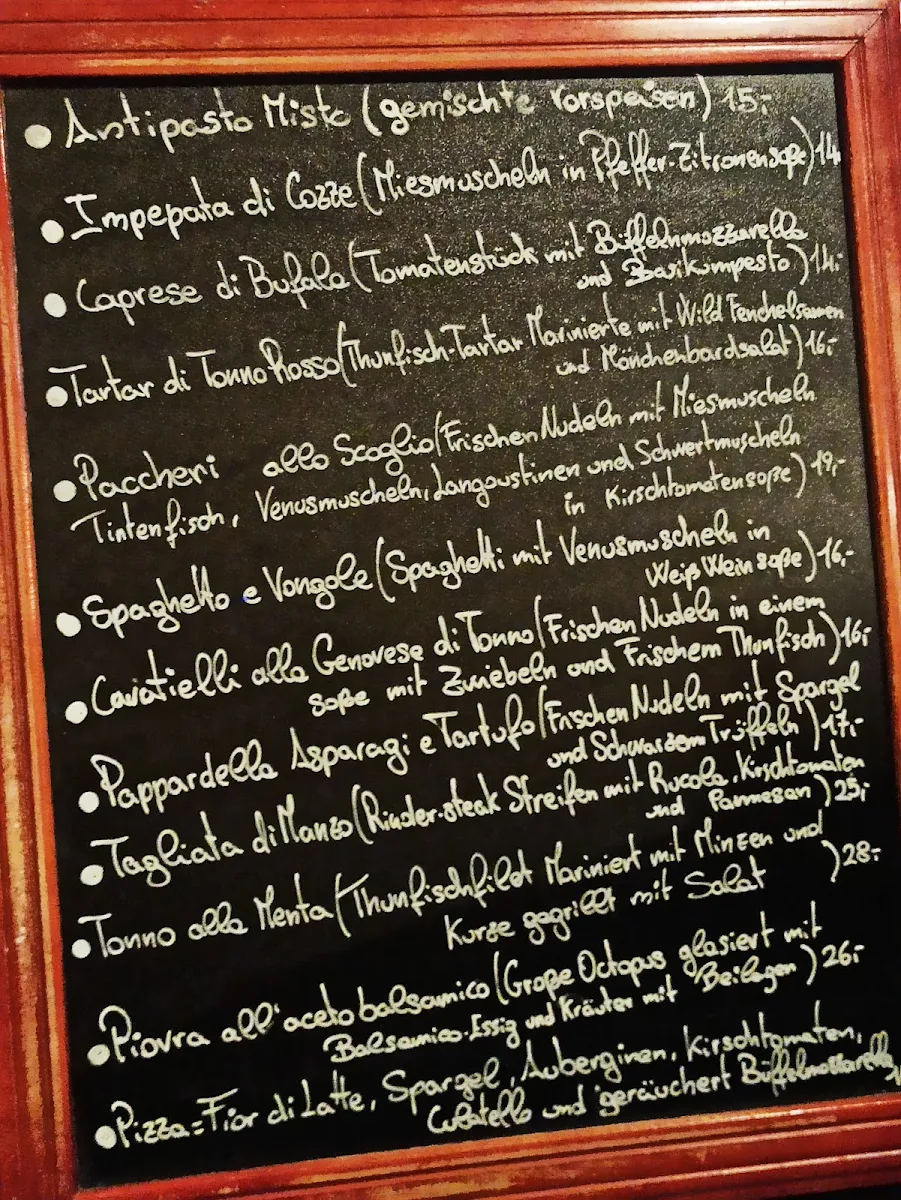 • Antipasto Misto (gemischte Vorspeisen) 15,-
• Impepata di Cozze (Miesmuscheln in Pfeffer-Zitronensoße) 14,
• Caprese di Bufala (Tomatenstück mit Büffelnmozzarella
und Basikumpesto) 14,-
• Tartar di Tonno Rosso (Thunfisch-Tartar Marinierte mit Wild Fenchelsamen
und Mönchenbardsalat) 16,-
• Paccheri allo Scoglio (Frischen Nudeln mit Miesmuscheln
Tintenfisch, Venusmuscheln, Langoustinen und Schwertmuscheln
in Kirschtomatensoße) 19,-
• Spaghetto e Vongole (Spaghetti mit Venusmuscheln in
Weiß Wein soße) 16,-
• Cavatielli alla Genovese di Tonno (Frischen Nudeln in einem
soße mit Zwiebeln und Frischem Thunfisch) 16,-
• Pappardella Asparagi e Tartufo (Frischen Nudeln mit Spargel
und Schwarzem Trüffeln) 17,-
• Tagliata di Manzo (Rinder-steak Streifen mit Rucola, Kirschtomaten
und Parmesan) 25,-
• Tonno alla Menta (Thunfischfilet Mariniert mit Minzen und
Kurze gegrillt mit Salat ) 28,-
• Piovra all'aceto balsamico (Große Octopus glasiert mit
Balsamico-Essig und Kräuten mit Beilagen) 26,-
• Pizza = Fior di Latte, Spargel, Auberginen, Kirschtomaten,
Culatello und geräuchert Büffelmozzarella